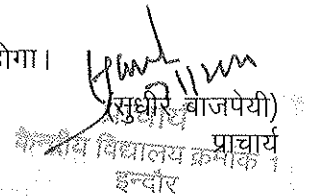 होगा।
(सुधीर बाजपेयी)
प्राचार्य
प्राचार्य
केन्द्रीय विद्यालय क्रमांक 1
इन्दौर